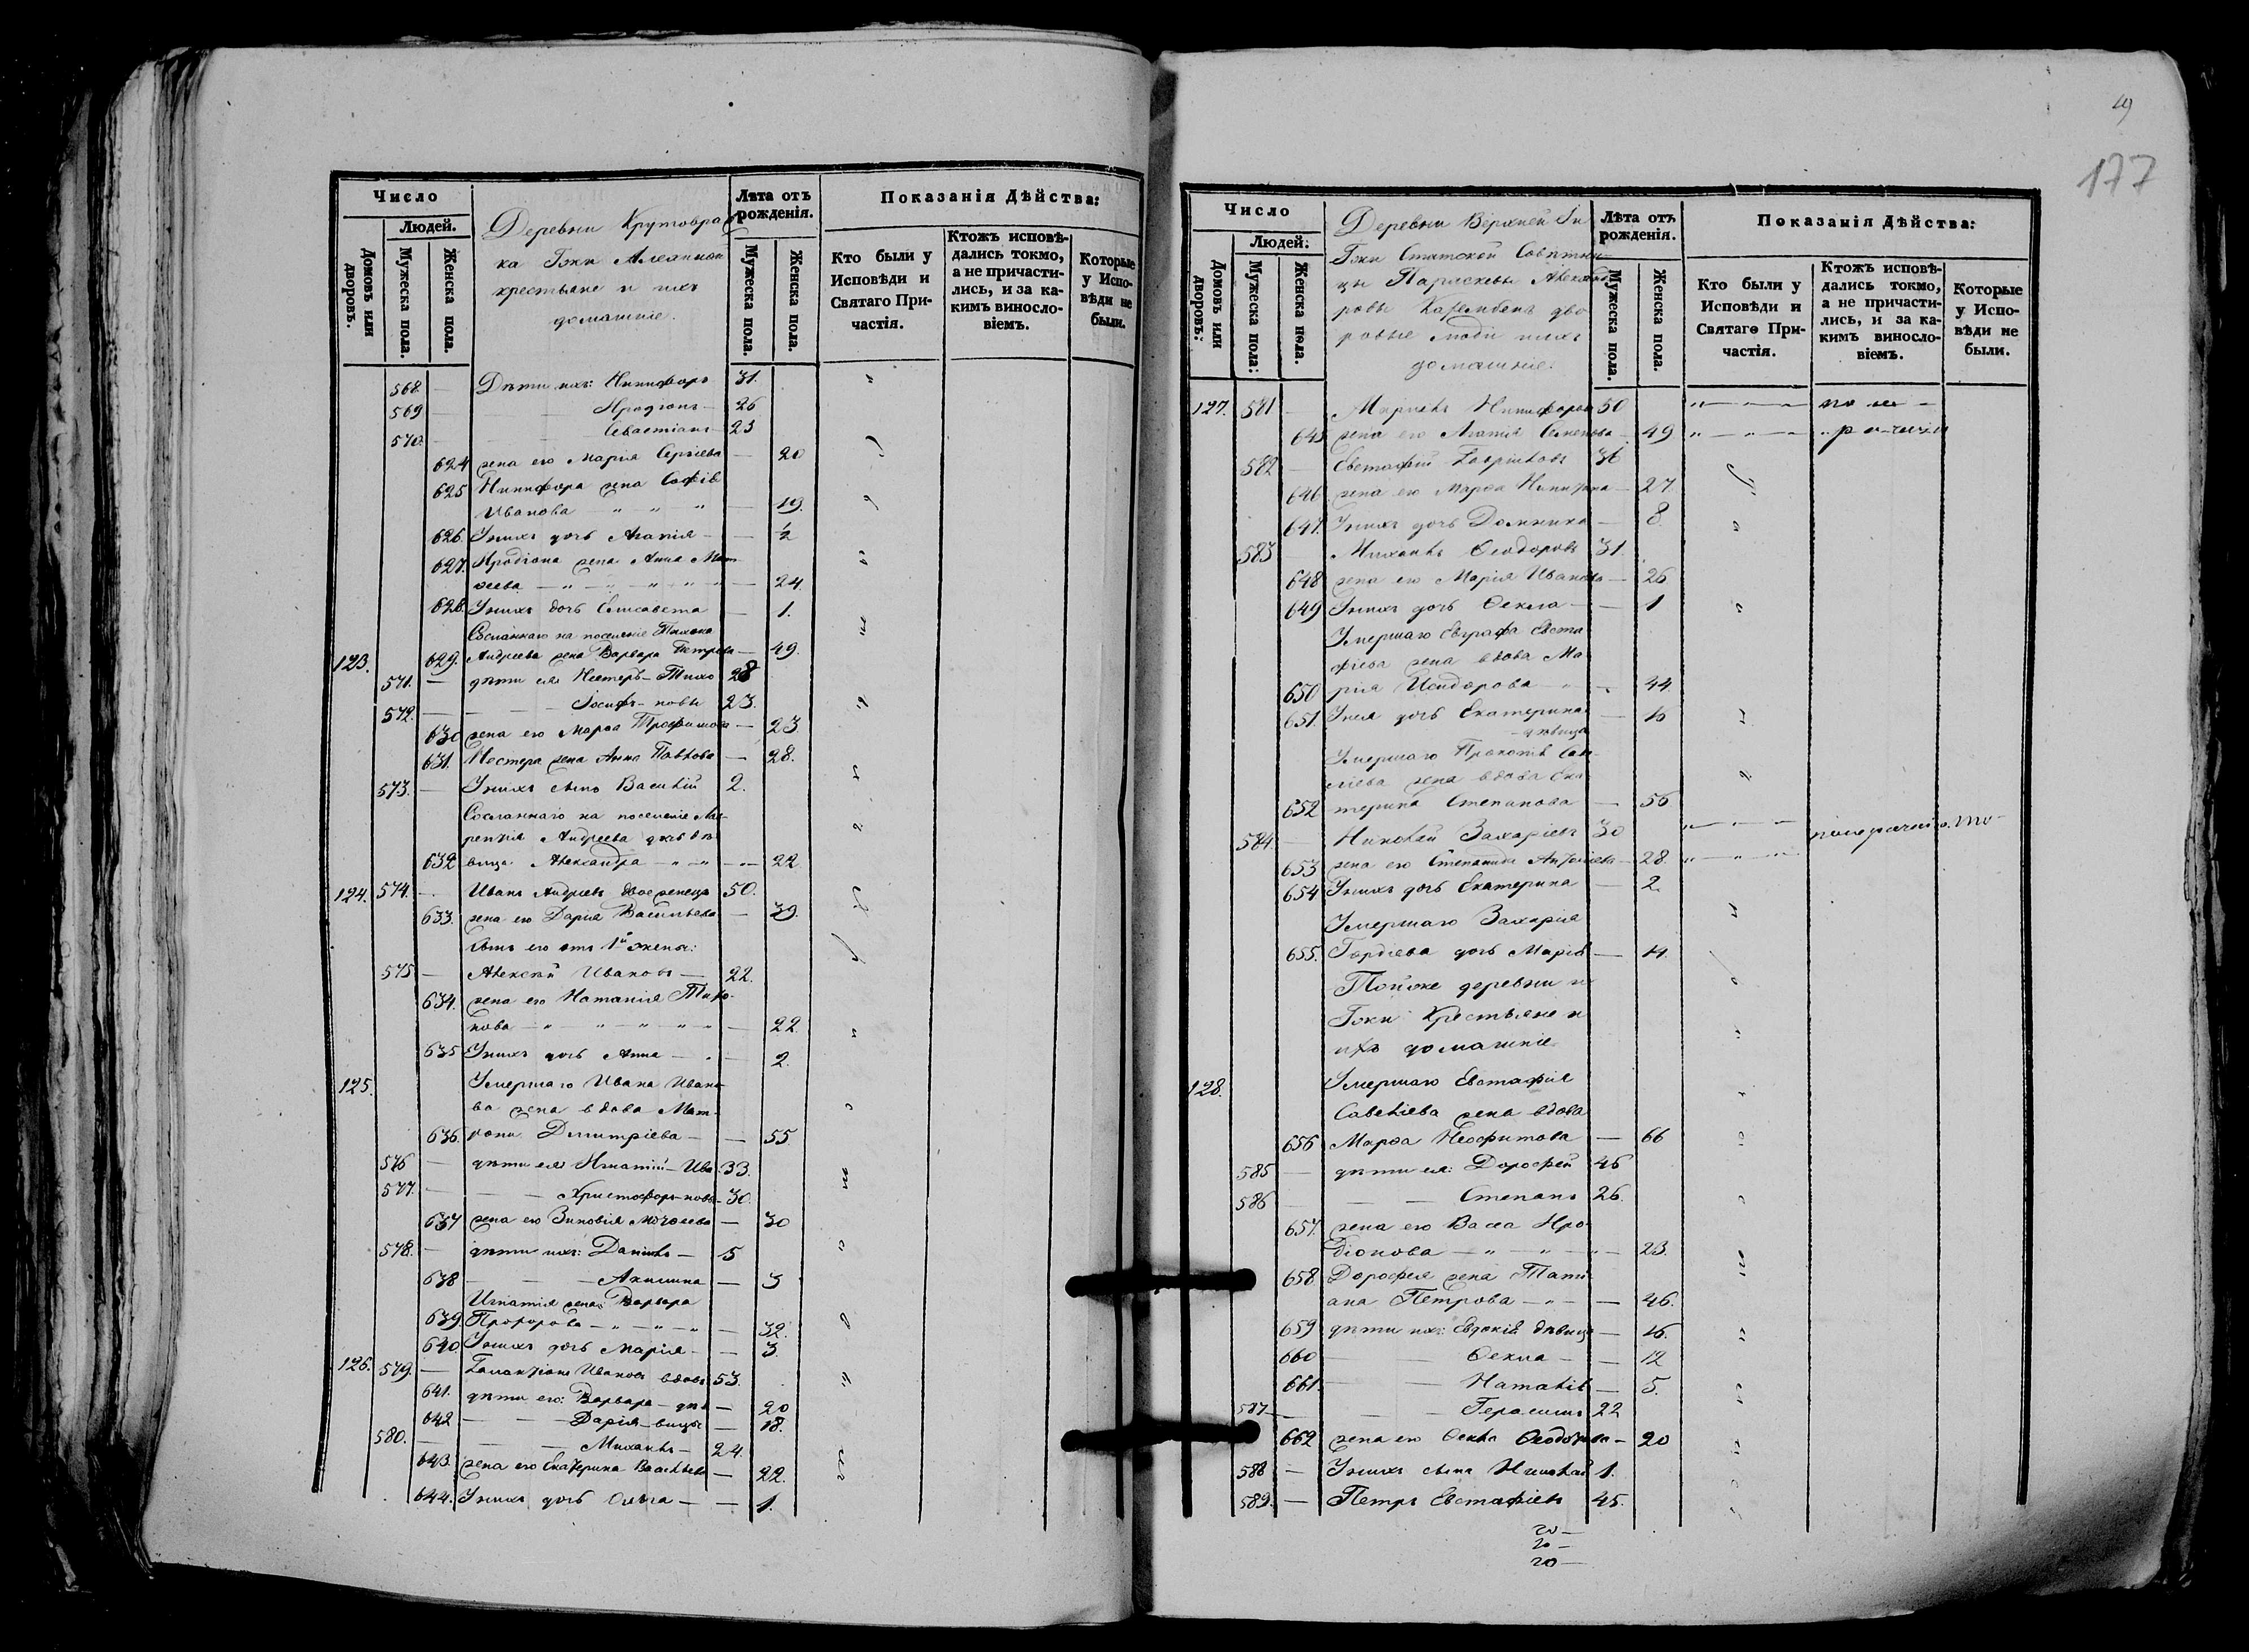 Число
Людей.
Домовъ или дворовъ.
Мужеска пола.
Женска пола.
Деревни Крутовра
ка Гжи
крестьяне и ихъ
домашніе.
Лѣта отъ рожденія.
Мужеска пола.
Женска пола.
Показанія Дѣйства:
Кто были у Исповѣди и Святаго При-частія.
Ктожъ исповѣ-дались токмо, а не причасти-лись, и за ка-кимъ виносло-віемъ.
Которые у Испо-вѣди не были.
568. — Дѣти ихъ: Никифоръ 31.
569 — Иродіонъ — 26
570. — Севастіанъ — 23
624 жена его Марія Сергіева — 20
625 Никифора жена Софія
Иванова — " — " — " — 19.
626. У нихъ дочь Агапія — — ½
627. Иродіона жена Анна Мат-
ѳеева — " — " — " — " — 24.
628. У нихъ дочь Елисавета — 1.
Сосланнаго на поселеніе Тихона
123. 629. Андреева жена Варвара Петрова — 49.
571. — дѣти ея: Нестеръ — Тихо 28
572. — — Іосифъ — новы 23.
630 жена его Марѳа Трофимова — 23
631. Нестера жена Анна Павлова — 28.
573. — У нихъ сынъ Василій 2.
Сосланнаго на поселеніе Ла-
рентія Андреева дочь дѣ
632 вица Александра — " — " — 22
124. 574. — Иванъ Андреевъ двоеженецъ 50.
633. жена его Дарія Васильева — 39.
Сынъ его отъ 1й жены:
575 — Алексѣй Ивановъ — 22.
634. жена его Наталія Тихо-
нова — " — " — " — " — 22.
635 У нихъ дочь Анна — — 2.
125. Умершаго Ивана Ивано-
ва жена вдова Мат-
636. рона Димитріева — — 55
576 — дѣти ея: Игнатій — Ива 33.
577. — — Христофоръ — новы 30.
637 жена его Зиновія Моѵсеева — 30
578. — дѣти ихъ: Даніилъ — 5
638 — — Акилина — 3
Игнатія жена Варвара
639. Прохорова — " — " — " — 32.
640. У нихъ дочь Марія — — 3.
126. 579. — Галактіонъ Ивановъ вдовъ 53.
641. дѣти его: Варвара — дѣ — 20
642 — — Дарія — вицы — 18.
580. — — Михаилъ — 24.
643. жена его Екатерина Васильева — 22.
644. У нихъ дочь Ольга — — 1.
177
Число
Людей.
Домовъ или дворовъ:
Мужеска пола:
Женска пола.
Деревни Верхней
Гжи Статской Совѣтни-
цы Параскевы Александ
ровы дво
ровые люди и ихъ
домашніе.
Лѣта отъ рожденія.
Мужеска пола.
Женска пола.
Показанія Дѣйства:
Кто были у Исповѣди и Святаго При-частія.
Ктожъ исповѣ-дались токмо, а не причасти-лись, и за ка-кимъ виносло-віемъ.
Которые у Испо-вѣди не были.
127. 581 — Никифоровъ 50
645 жена его Агапія Семенова — 49
582 — Евстафій Гавріиловъ 36
646 жена его Марѳа — 27.
647. У нихъ дочь Домника — 8.
583 — Михаилъ Ѳеодоровъ 31.
648 жена его Марія Иванова — 26
649 У нихъ дочь Ѳекла — — 1
Умершаго Евграфа Евста
фіева жена вдова Ма-
650 рія Исидорова — " — 44.
651. У нея дочь Екатерина — 16
— дѣвица
Умершаго Прокопія Сав-
еліева жена вдова Ека-
652 терина Степанова — 56
584. — Николай Захаріевъ 30
653 жена его Степанида — 28.
654 У нихъ дочь Екатерина — 2.
Умершаго Захарія
655. Гордіева дочь Марія — 14.
Тойже деревни и
Гжи Крестьяне и
ихъ домашніе
128. Умершаго Евстафія
Савеліева жена вдова
656 Марѳа Неофитова — 66
585 — дѣти ея: Дороѳей 46
586 — — Степанъ 26.
657. жена его Васса Иро-
діонова — " — " — " — 23.
658. Дороѳея жена Тати-
ана Петрова — " — — 46.
659 дѣти ихъ: Евдокія дѣвица — 16.
660 — — Ѳекла — — 12
661. — — Наталія — 5.
587 — — Герасимъ 22
662 жена его Ѳекла Ѳеодорова — 20
588 — У нихъ сынъ Николай 1.
589. — Петръ Евстафіевъ 45.
20 —
20 —
20 —